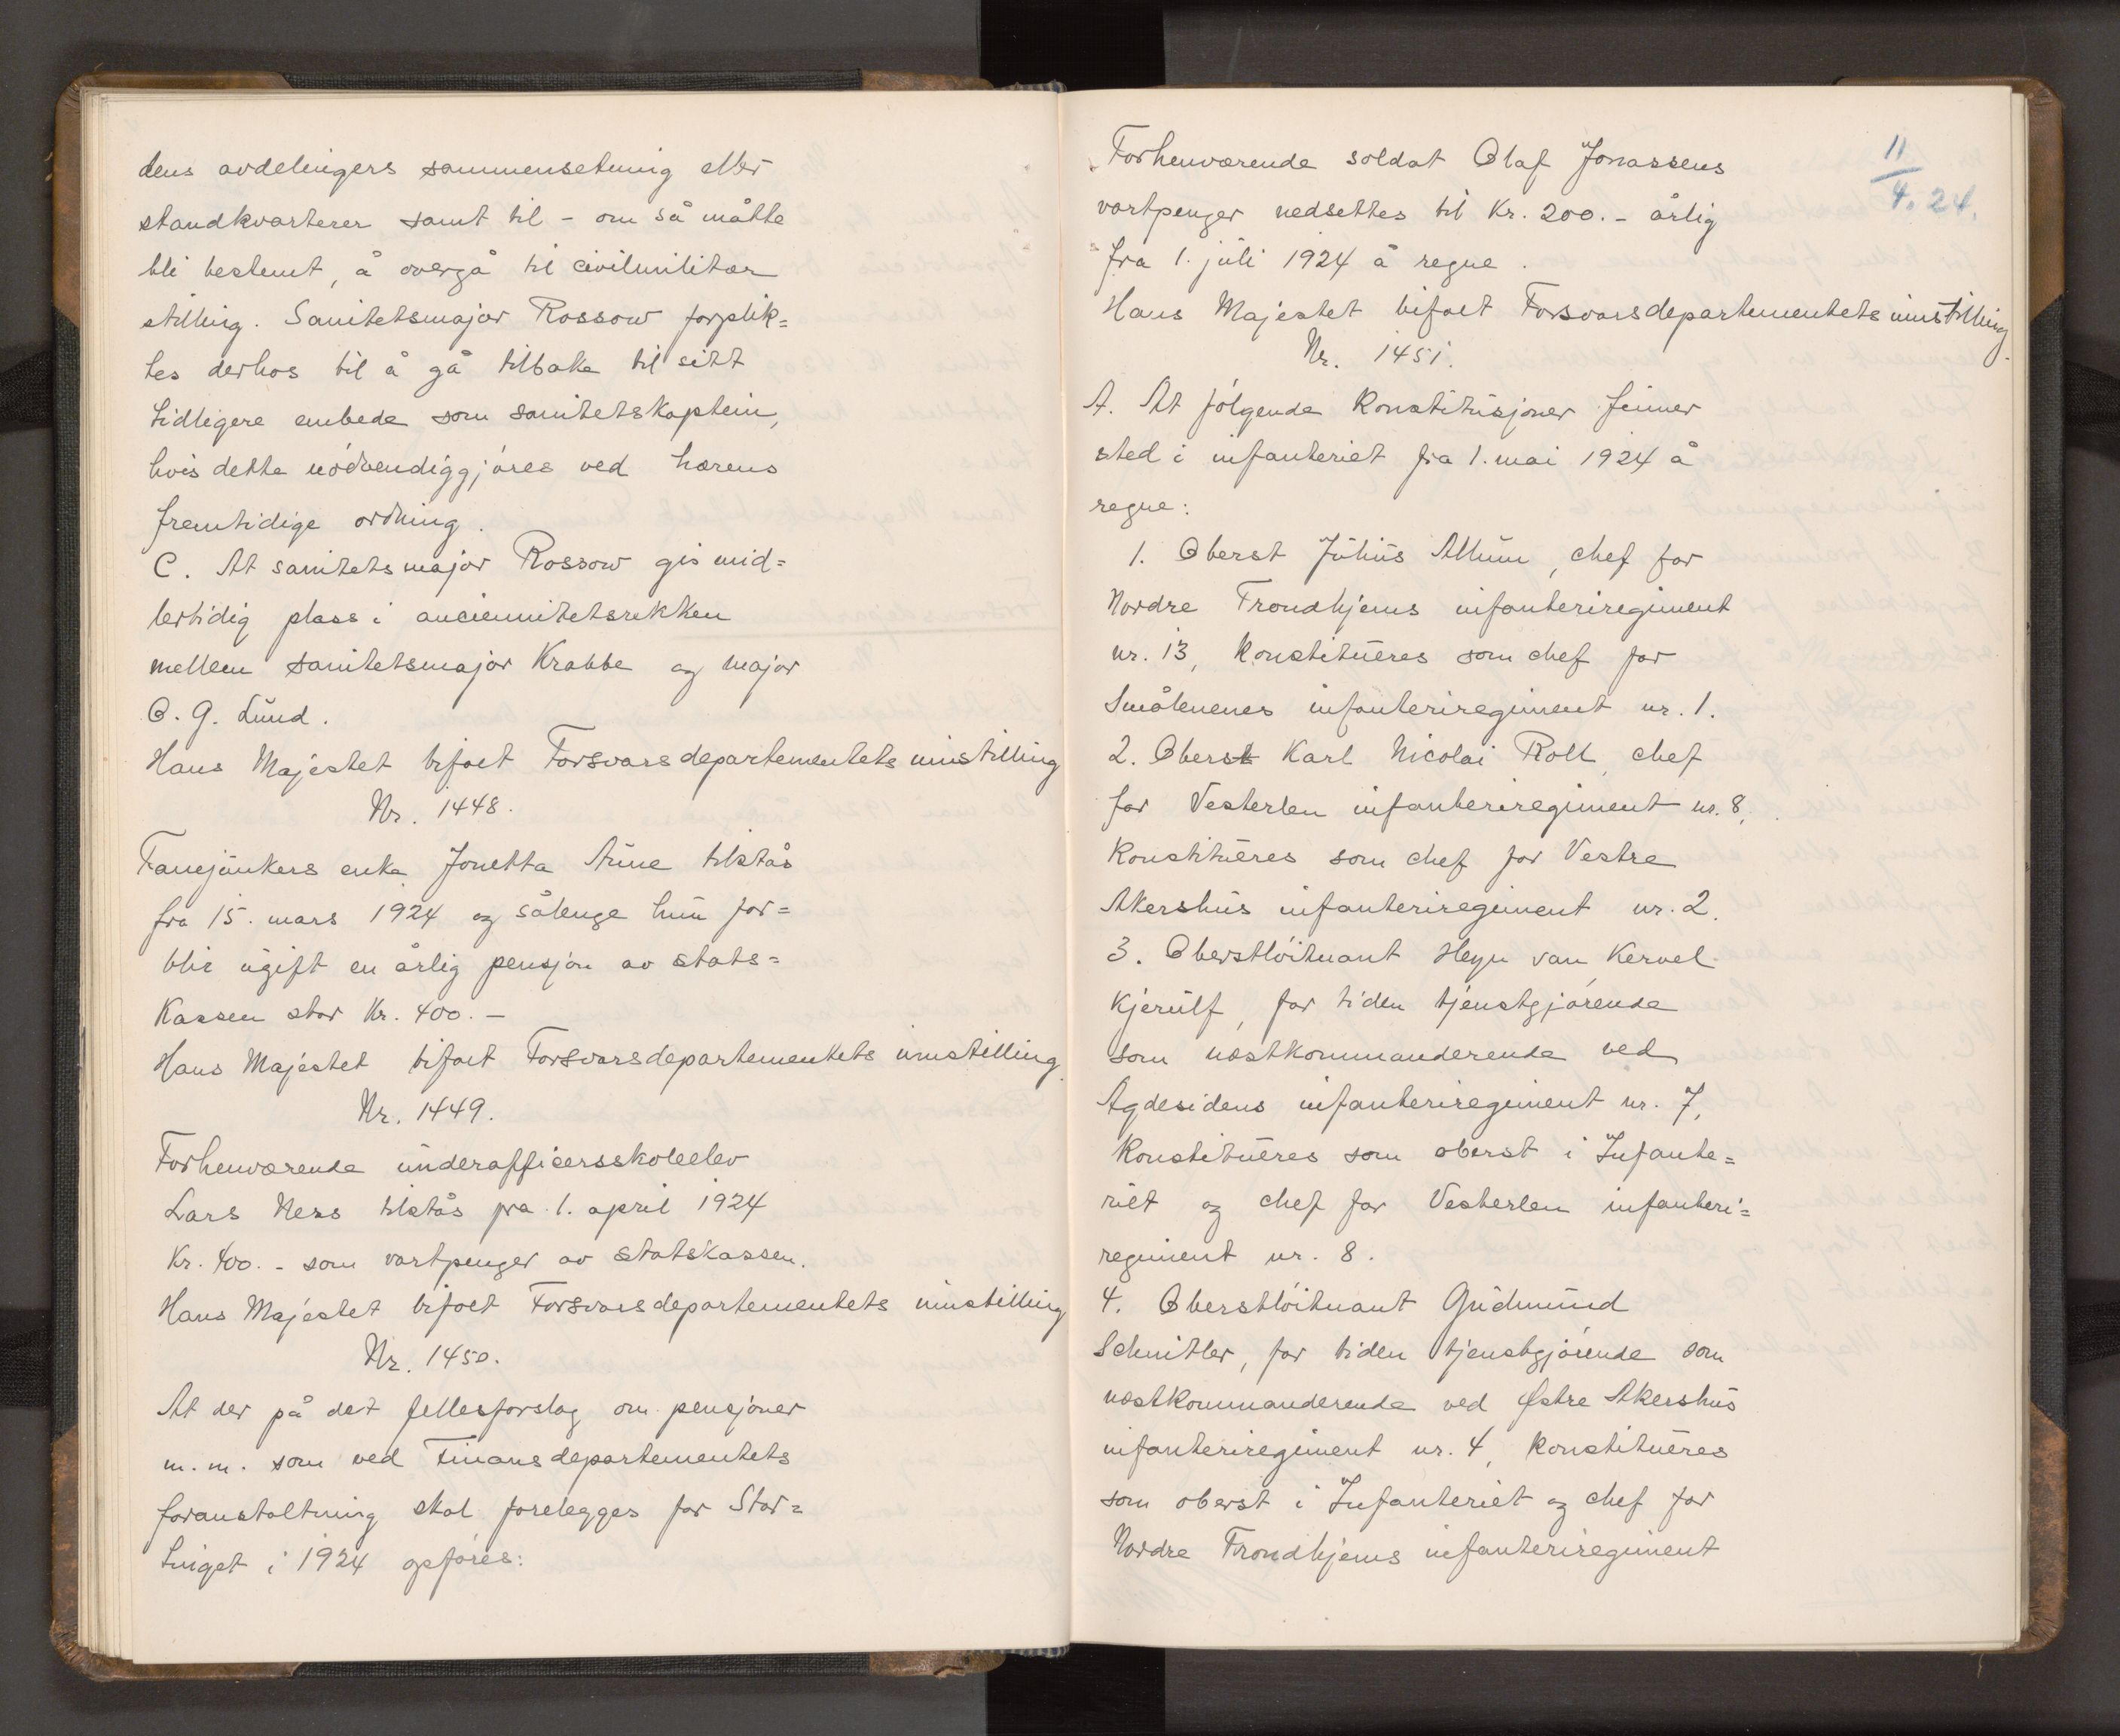 dens avdelingers sammensetning eller
standkvarterer samt til - om så måtte
bli bestemt, å overgå til civilmilitær
stilling. Sanitetsmajor Rossow forplik=
tes derhos til å gå tilbake til sitt
tidligere embede som sanitetskaptein,
hvis dette nödvendiggjöres ved hærens
fremtidige ordning.
C. At sanitetsmajor Rossow gis mid=
lertidig plass i anciennitetsrekken
mellem sanitetsmajor Krabbe og major
O. G. Lund.
Hans Majestet bifaet Forsvarsdepartementets innstilling
Nr. 1448.
Fanejunkers enke Jonetta Aune tilstås
fra 15. mars 1924 og sålenge hun for=
blir ugift en årlig pensjon av stats=
kassen stor Kr. 400.-
Hans Majestet bifaet Forsvarsdepartementets innstilling.
Nr. 1449.
Forhenværende underofficersskoleelev
Lars Ness tilstås fra 1. april 1924
Kr. 400.- som vartpenger av statskassen.
Hans Majestet bifaet Forsvarsdepartementets innstilling
Nr. 1450.
At der på det fellesforslag om pensjoner
m. m. som ved Finansdepartementets
foranstaltning skal forelegges for Stor=
tinget i 1924 opföres:
Forhenværende soldat Olaf Jonassens
vartpenger nedsettes til Kr. 200.- årlig
fra 1. juli 1924 å regne.
11/4. 24.
Hans Majestet bifaet Forsvarsdepartementets innstilling.
Nr. 1451.
A. At fölgende konstitusjoner finner
sted i infanteriet fra 1. mai 1924 å
regne:
1. Oberst Julius Allum, chef for
Nordre Trondhjems infanteriregiment
nr. 13, konstitueres som chef for
Smålenenes infanteriregiment nr. 1.
2. Oberst Karl Nicolai Roll, chef
for Vesterlen infanteriregiment nr. 8,
konstitueres som chef for Vestre
Akershus infanteriregiment nr. 2.
3. Oberstlöitnant Heyn van Kervel
Kjerulf, for tiden tjenstgjörende
som næstkommanderende ved
Agdesidens infanteriregiment nr. 7,
konstitueres som oberst i Infante=
riet og chef for Vesterlen infanteri=
regiment nr. 8.
4. Oberstlöitnant Gudmund
Schnitler, for tiden tjenstgjörende som
næstkommanderende ved Østre Akershus
infanteriregiment nr. 4, konstitueres
som oberst i Infanteriet og chef for
Nordre Trondhjems infanteriregiment